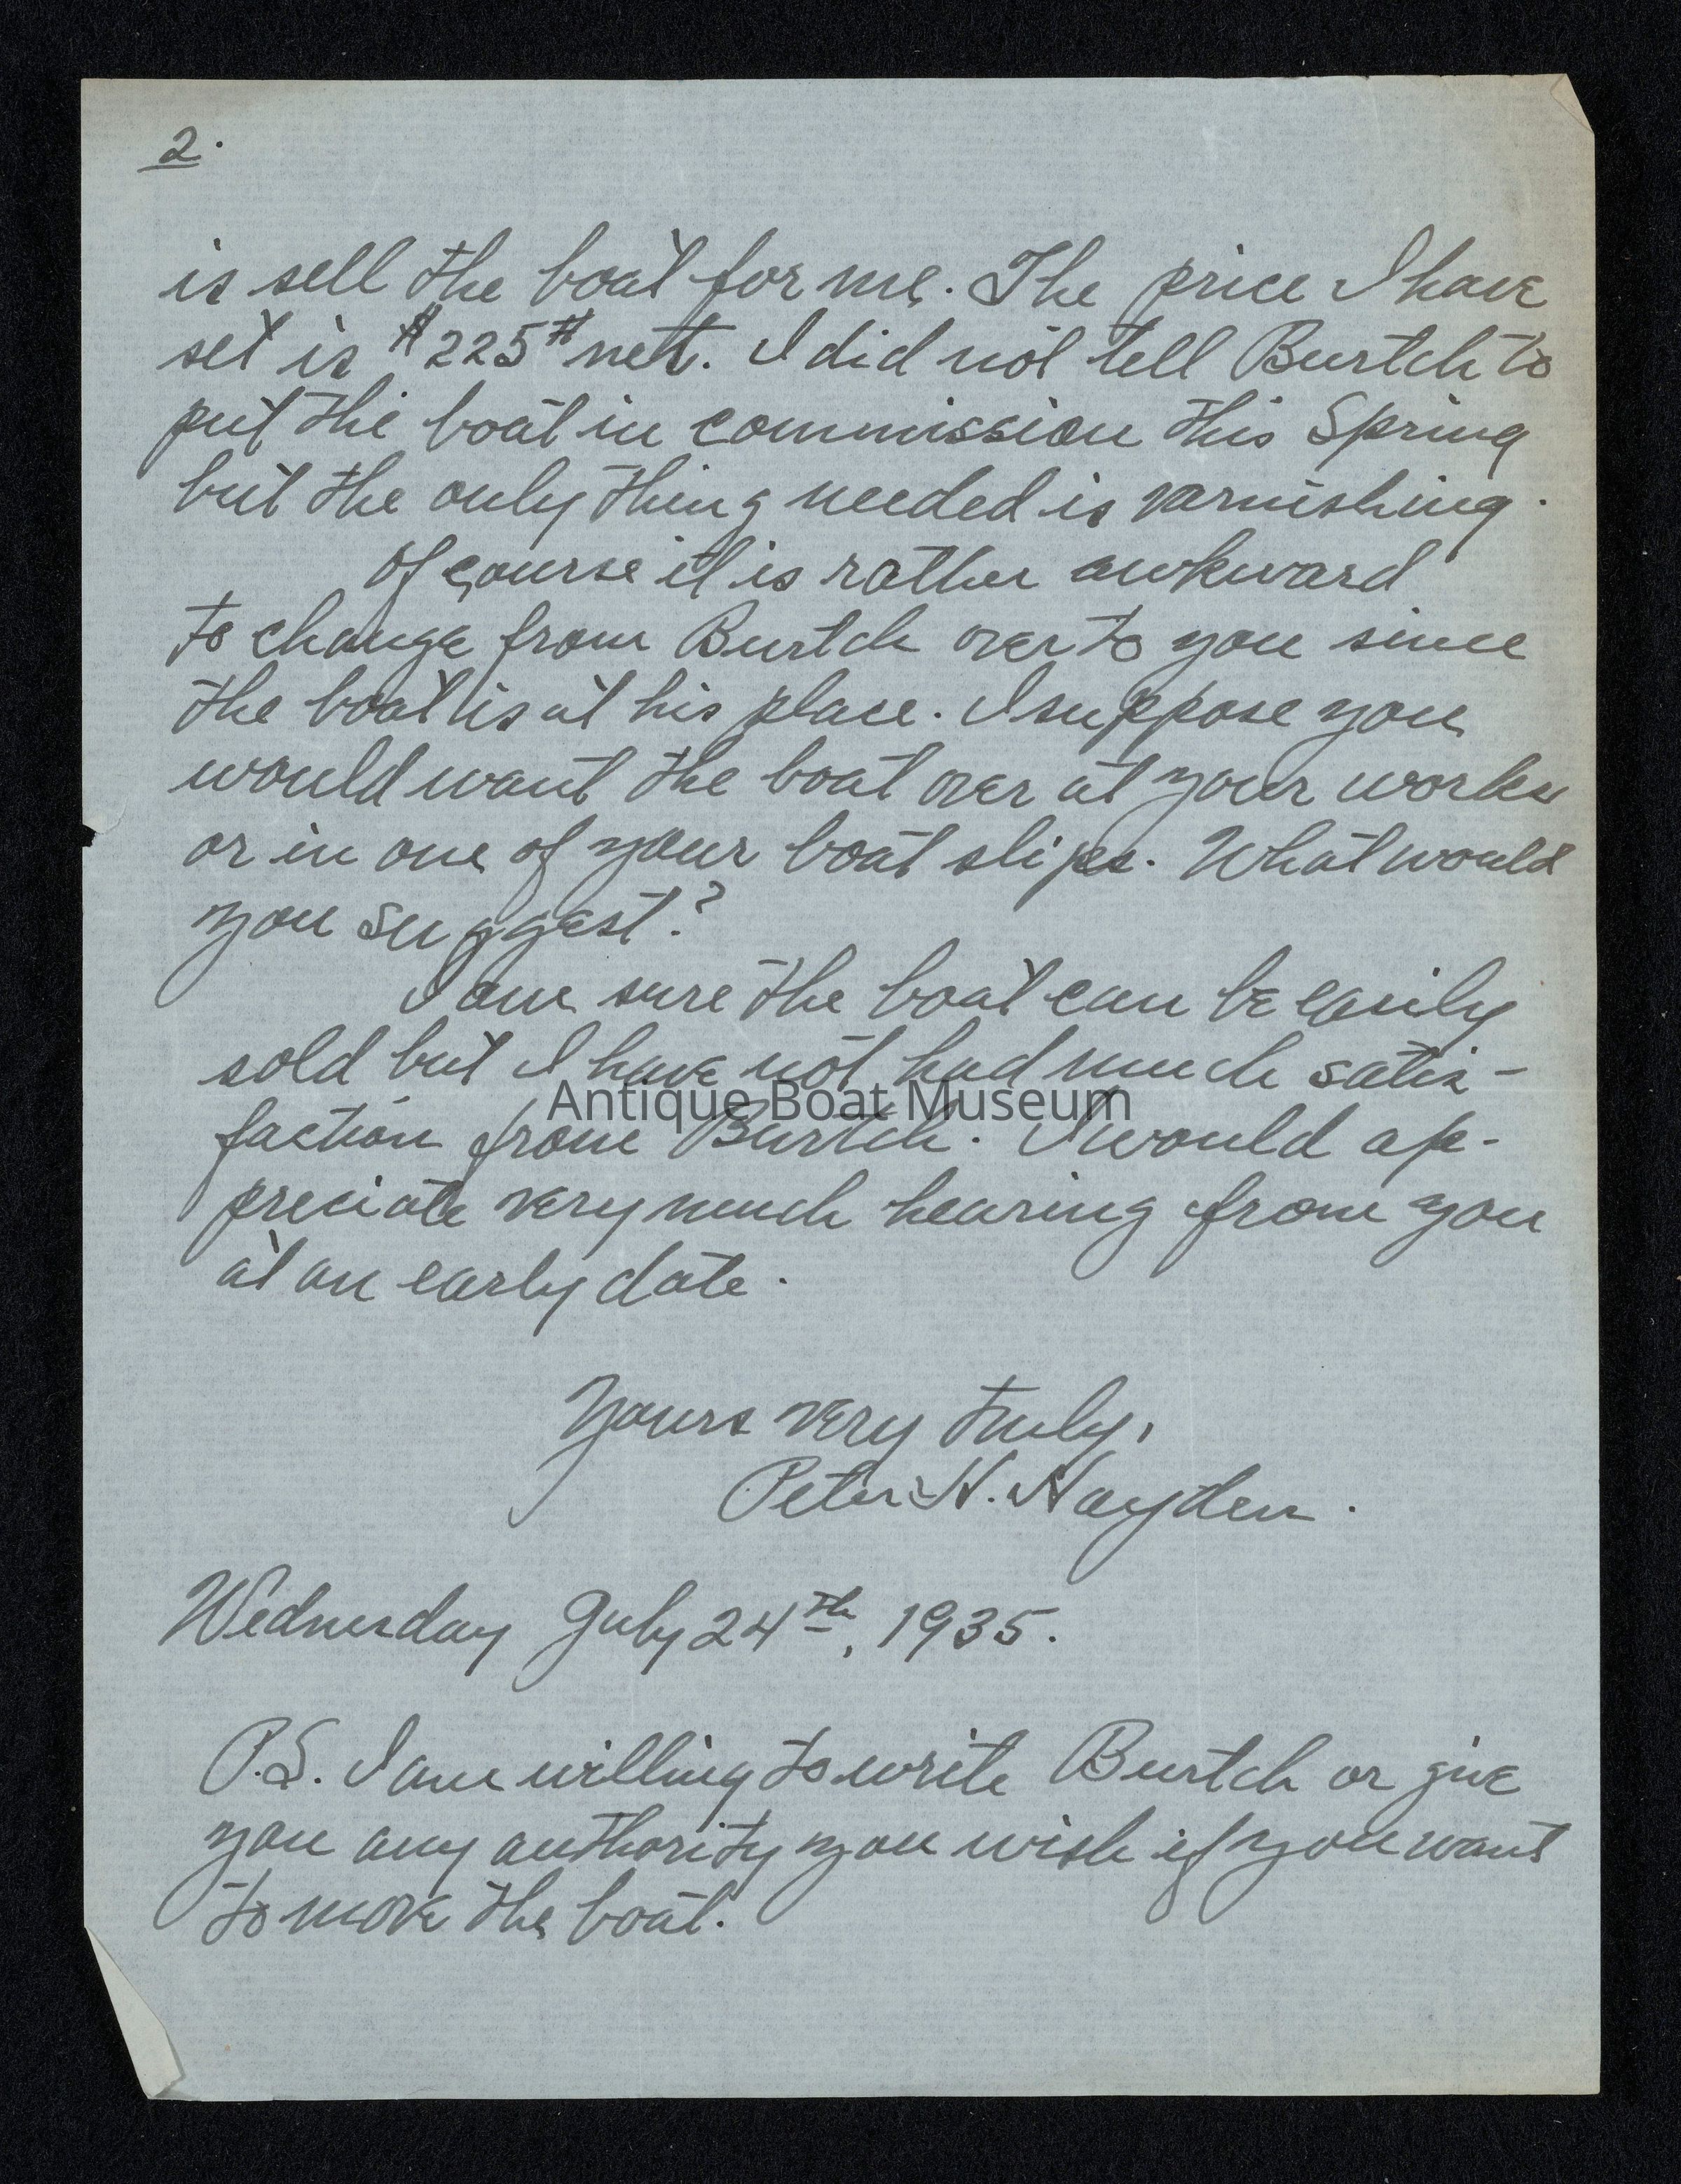 2.
is sell the boat for me. The price I have
set is $225# net. I did not tell Burtch to
put the boat in commission this Spring
but the only thing needed is varnishing.
Of course it is rather awkward
to change from Burtch over to you since
the boat is at his place. I suppose you
would want the boat over at your works
or in one of your boat slips. What would
you suggest?
I am sure the boat can be easily
sold but I have not had much satis-
faction from Burtch. I would ap-
preciate very much hearing from you
at an early date.
Yours very truly,
Peter H. Hayden.
Wednesday July 24th, 1935.
P.S. I am willing to write Burtch or give
you any authority you wish if you want
to move the boat.
Antique Boat Museum